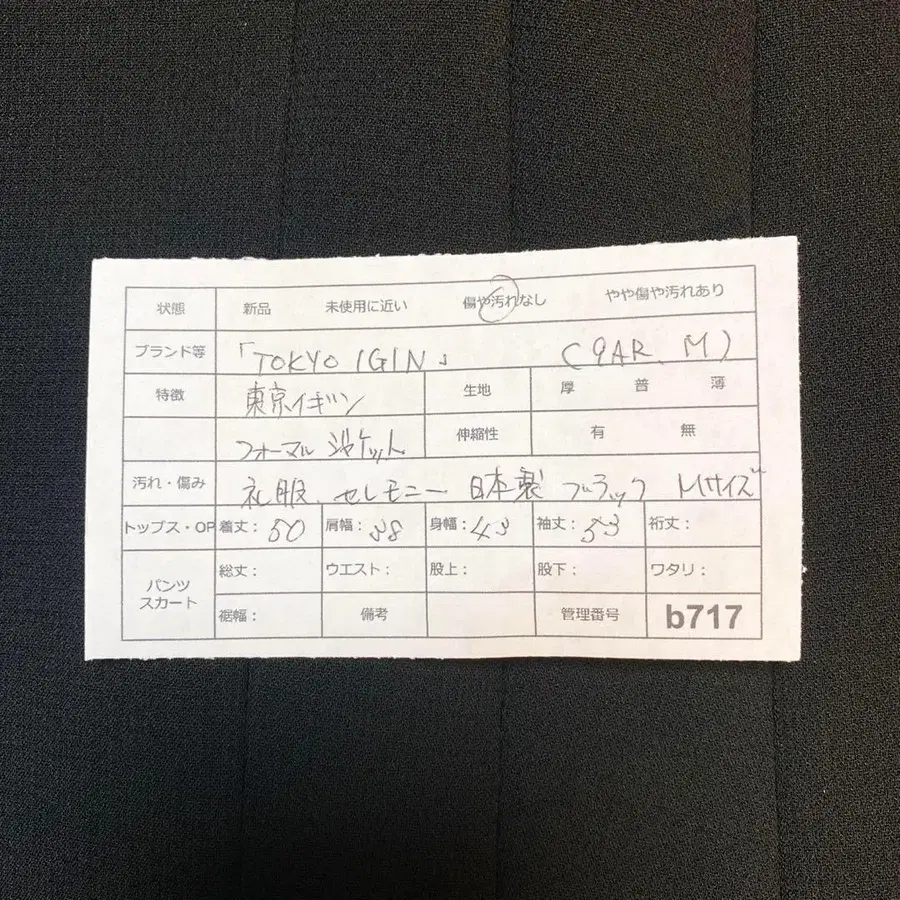 状態 新品 未使用に近い 傷や汚れなし やや傷や汚れあり
ブランド等 「TOKYO IGIN」 (9AR、M)
特徴 東京イギン 生地 厚 普 薄
フォーマルジャケット 伸縮性 有 無
汚れ・傷み 礼服、セレモニー 日本製 ブラック Mサイズ
トップス・OP 着丈：50 肩幅：38 身幅：43 袖丈：53 裄丈：
パンツ スカート 総丈： ウエスト： 股上： 股下： ワタリ：
裾幅： 備考 管理番号 b717